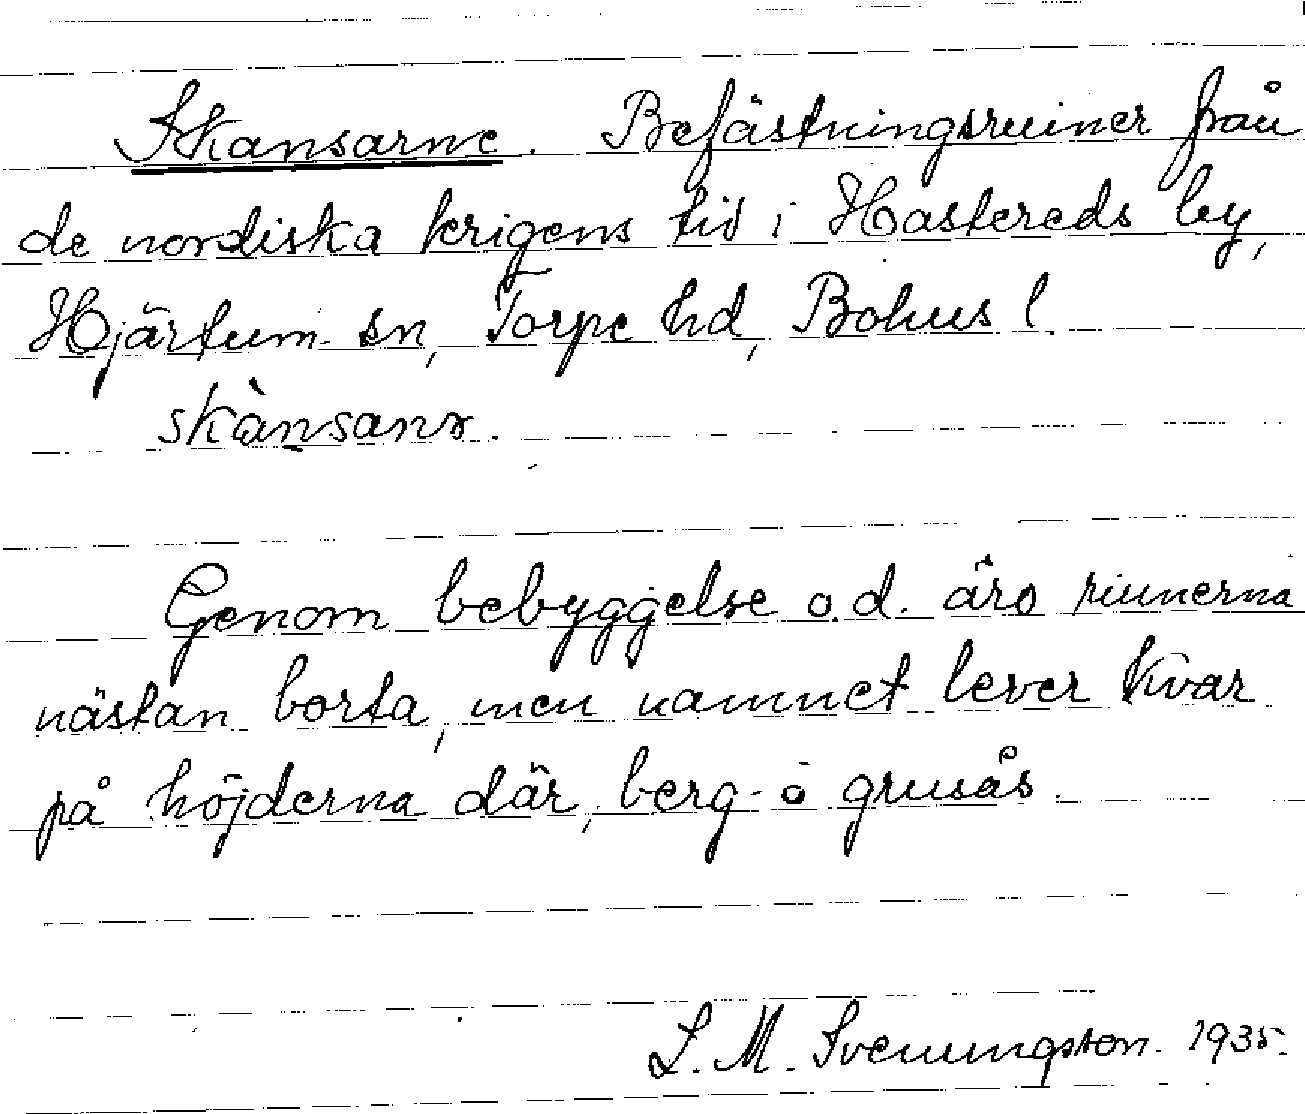 Skansarne. Befästningsruiner från
de nordiska krigens tid i Hastereds by,
Hjärtum sn, Torpe hd, Bohus l.
skànsanr.
Genom bebyggelse o.d. äro riunerna
nästan borta, men namnet lever kvar
på höjderna där, berg- o grusås.
L. M. Svenungsson. 1935.